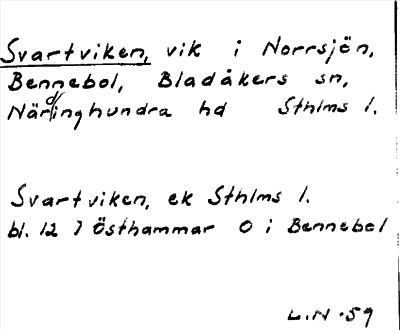 Svartviken, vik i Norrsjön,
Bennebol, Bladåkers sn,
Närdinghundra hd Sthlms l.
Svartviken, ek Sthlms l.
bl. 12 7 Östhammar O i Bennebol
L.N -59